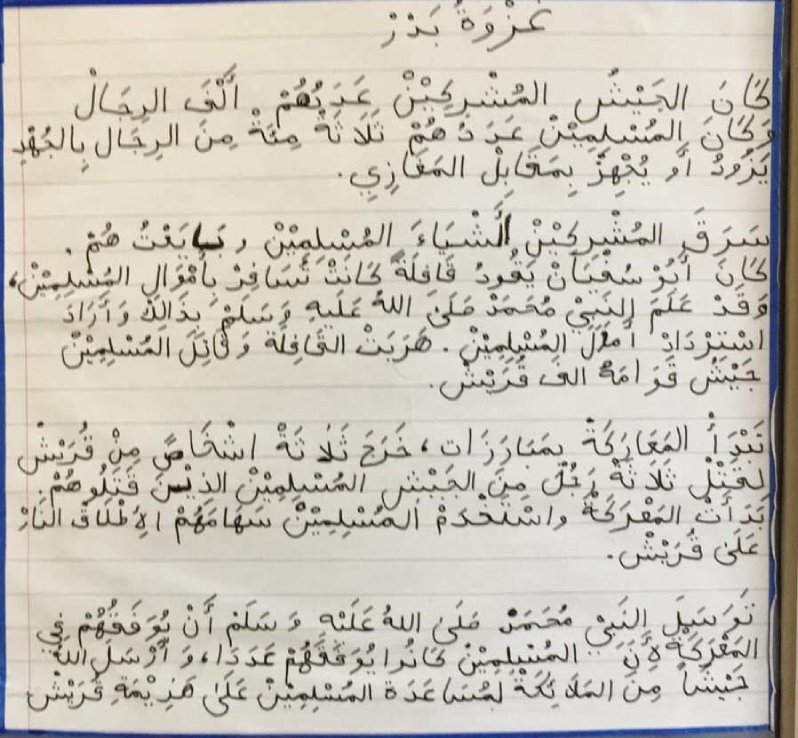 غَزْوَةُ بَدْرْ
كَانَ الجَيْشُ المُشْرِكِيْنْ عَدَدُهُمْ أَلْفَ الرِجَالْ
وَكَانَ المُسْلِمِيْنْ عَدَدُهُمْ ثَلَاثَةْ مِئَةْ مِنَ الرِجَال بِالجُهْدِ
يَزُودُ أَو يُجْهِزَّ بِمَقَابِلْ المَغَازِي.
سَرَقَ المُشْرِكِيْنْ أَشْيَاءَ المُسْلِمِيْنْ وَبَايَعْتُ هُمْ.
كَانَ أَبُو سُفْيَانْ يَقُودُ قَافِلَةً كَانَتْ تُسَافِرْ بِأَمْوَالِ المُسْلِمِيْنْ،
وَقَدْ عَلَمَ النَبِيْ مُحَمَدْ صَلَىَ اللهُ عَلَيهِ وَسَلَمْ بِذَالِكَ وَأَرَادَ
اسْتِرْدَادْ أَمْوَلَ المُسْلِمِيْنْ. هَرَبَتْ القَافِلَةْ وَقَاتَلَ المُسْلِمِيْنْ
جَيْشْ قَوَامَهُ الف قُرَيْشْ.
تَبْدَأُ المَعَارَكَةْ بِمَبَارَزَات، خَرَجَ ثَلَاثَةْ اشْخَاصً مِنْ قُرَيْشْ
لِقَتْلْ ثَلَاثَةْ رَجُلْ مِنَ الجَيْشِ المُسْلِمِيْنْ الذِيْنَ قَتَلُوهُمْ.
بَدَأَتْ المَعْرَكَةْ وَاسْتَخْدَمْ المُسْلِمِيْنْ سَهَامَهُمْ لِإِطْلَاقْ النَارْ
عَلَىَ قُرَيْشْ.
تَوَسَيلَ النَبِيْ مُحَمَدْ صَلَىَ اللهُ عَلَيْهِ وَسَلَمْ أَنْ يُوَفَقُهُمْ فِي
المَعْرَكَةْ لِأَنَ المُسْلِمِيْنْ كَانُوا يُوَفَقَهُمْ عَدَدَا، وَأَرْسَلَ اللهَ
جَيْشَاً مِنَ المَلَائِكَةْ لِمُسَاعَدَة المُسْلِمِيْنْ عَلَىَ هَزِيْمَةِ قُرَيْشْ